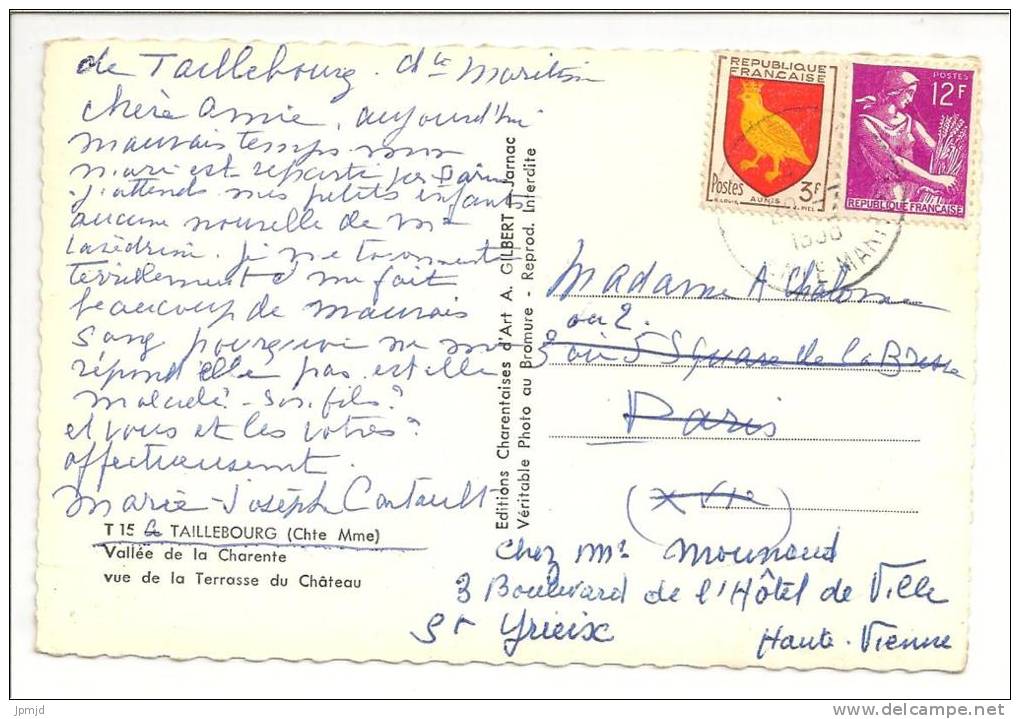 de Taillebourg. Cte Maritime
chère Amie, aujourd'hui
mauvais temps mon
mari est reparti par Paris
j'attends mes petits enfants
aucune nouvelle de Me
je me tourmente
terriblement et me fait
beaucoup de mauvais
sang pourquoi ne me
répond elle pas est elle
malade - son fils?
et vous et les votres?
affectueusement.
Marie-Joseph Contault
T 15 TAILLEBOURG (Chte Mme)
Vallée de la Charente
vue de la Terrasse du Château
Editions Charentaises d'Art A. GILBERT Jarnac
Véritable Photo au Bromure - Reprod. Interdite
REPUBLIQUE
FRANÇAISE
Postes
3F
AUNIS
POSTES
12F
REPUBLIQUE FRANÇAISE
Madame A
ou 2.
3 ou 5 Square de la Bresse
Paris
(XVIe)
chez Mr Mounaud
3 Boulevard de l'Hôtel de Ville
St Yrieix
Haute-Vienne
jpmjd
delcampe.net